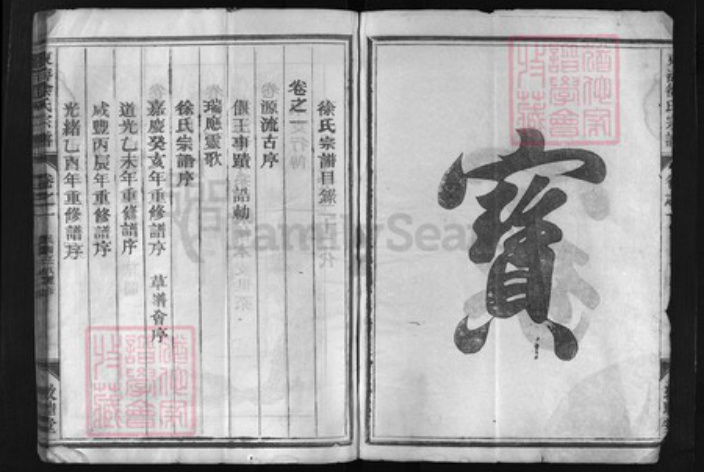 寶
徐氏宗譜目錄
卷之一
源流古序
偃王事蹟 誥勅
瑞應靈歌
徐氏宗譜序
嘉慶癸亥年重修譜序 草畧會序
道光乙未年重修譜序
咸豐丙辰年重修譜序
光緒乙酉年重修譜序
東海徐氏宗譜
卷之一
FamilySearch